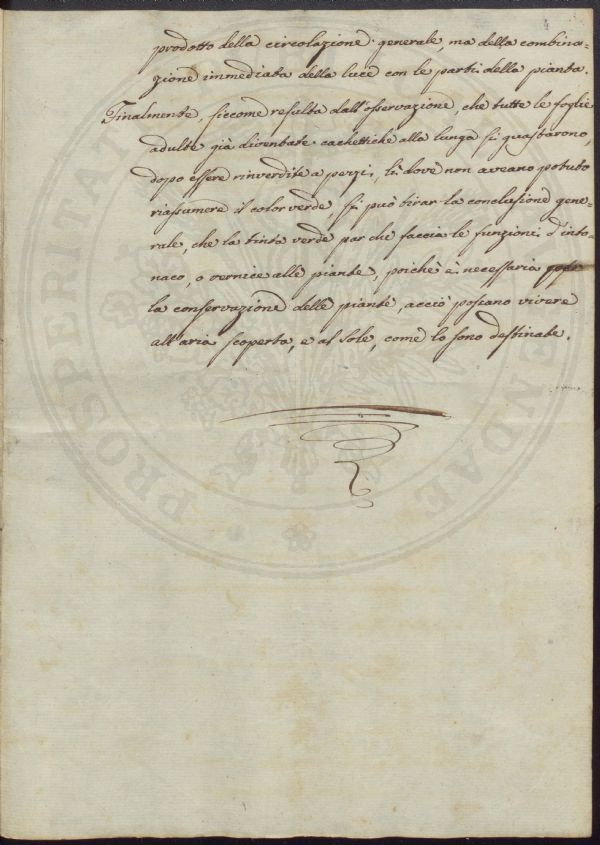 4
prodotto della circolazione generale, ma della combina=
zione immediata della luce con le parti della pianta.
Finalmente, siccome resulta dall'osservazione, che tutte le foglie
adulte già diventate cachettiche alla lunga si guastarono,
dopo essere rinverdite a pezzi, lì dove non aveano potuto
riassumere il color verde, si può tirar la conclusione gene=
rale, che la tinta verde par che faccia le funzioni d'into=
naco, o vernice alle piante, poichè è necessaria
la conservazione delle piante, acciò possano vivere
all'aria scoperta, e al Sole, come lo sono destinate.
PROSPERITATI